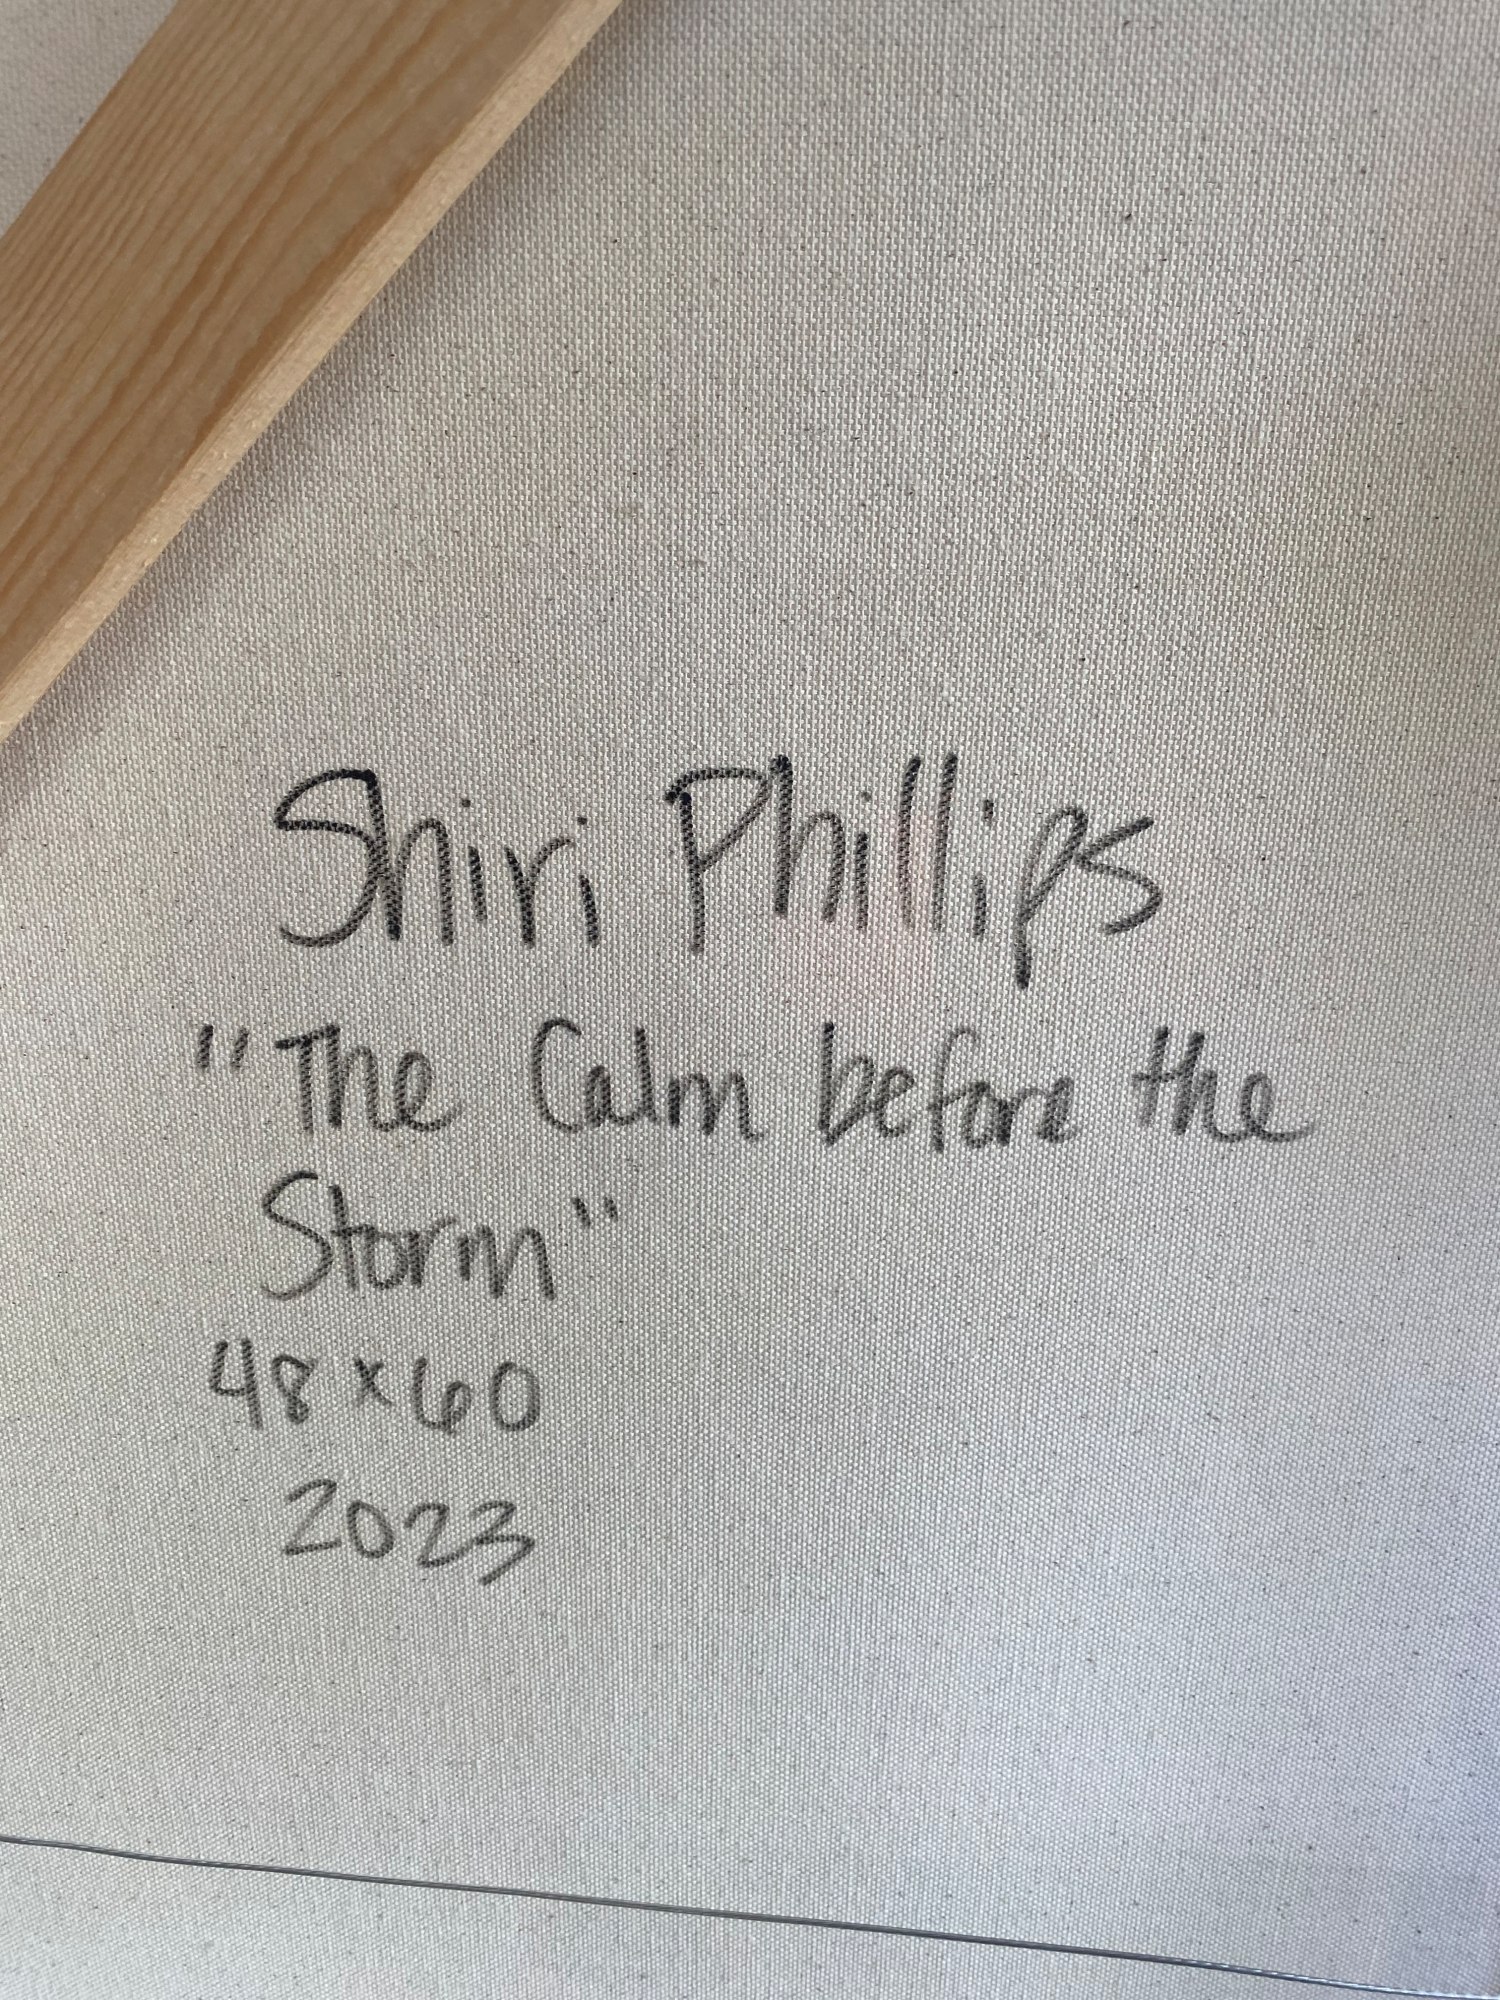 Shiri Phillips
"The Calm before the
Storm"
48x60
2023